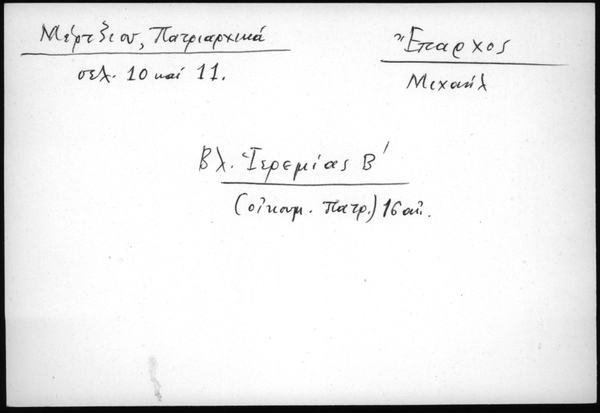 Μέρτζιου, Πατριαρχικά
σελ. 10 καί 11.
Ἔπαρχος
Μιχαήλ
Βλ. Ἱερεμίας Β'
(οἰκουμ. Πατρ.) 16 αἰ.